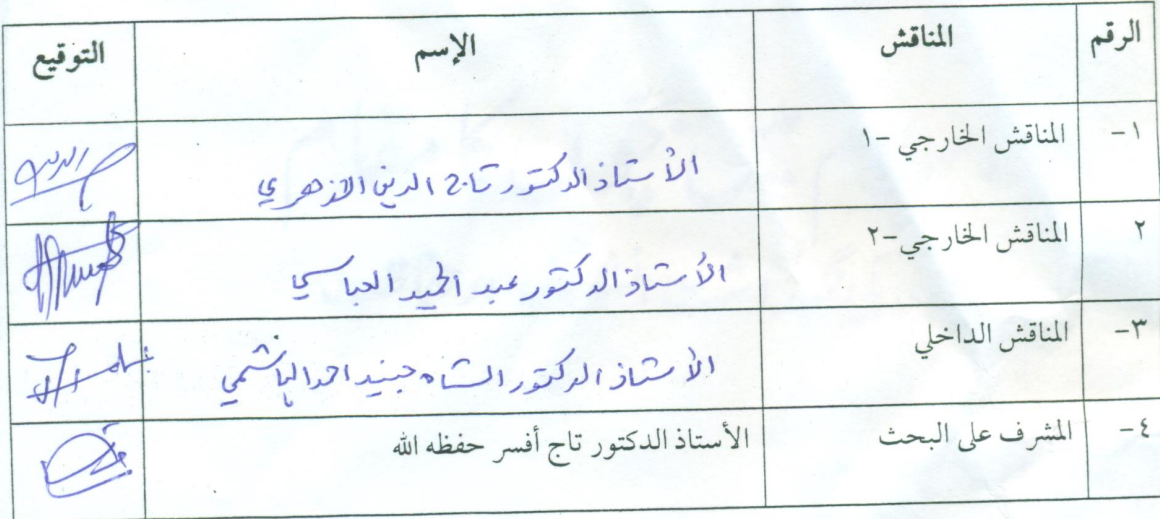 الرقم المناقش الإسم التوقيع
١- المناقش الخارجي -١ الأستاذ الدكتور تاج الدين الازهري
٢ المناقش الخارجي-٢ الأستاذ الدكتور عبد الحميد العباسي
٣- المناقش الداخلي الأستاذ الدكتور الشاه جنيد احمد الهاشمي
٤- المشرف على البحث الأستاذ الدكتور تاج أفسر حفظه الله